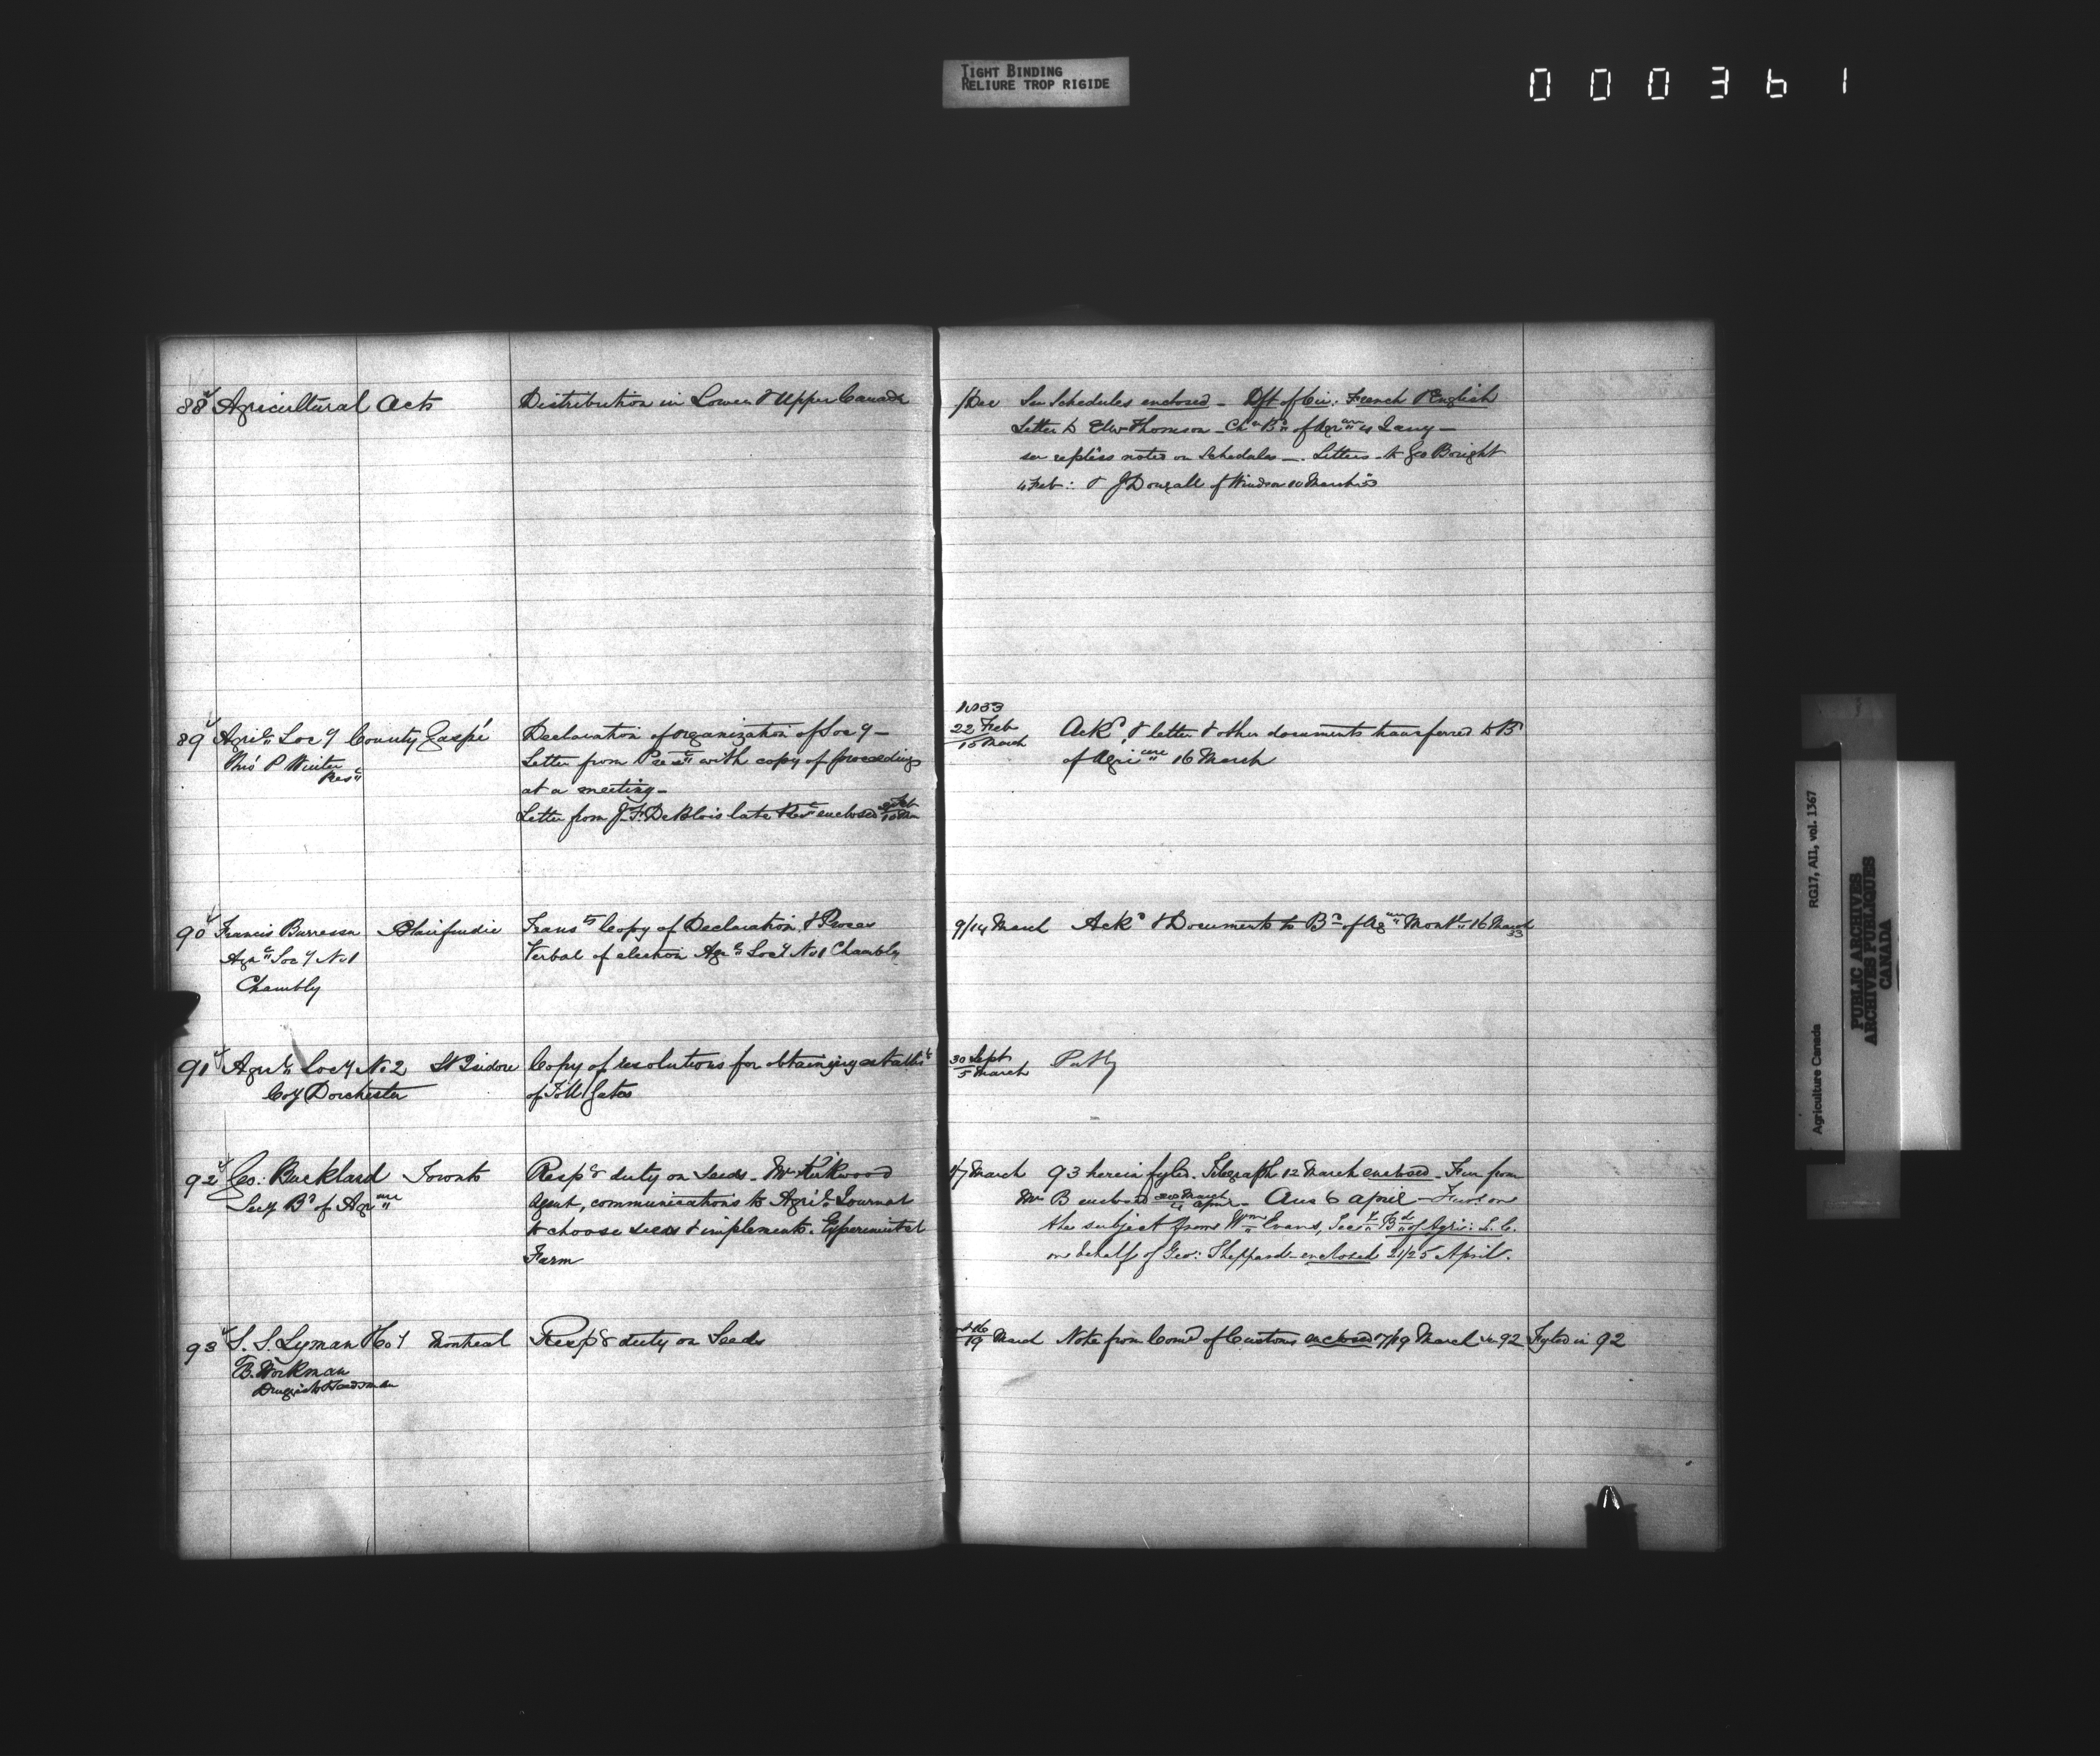 TIGHT BINDING
RELIURE TROP RIGIDE
000361
88 Agricultural Acts
Distribution in Lower & Upper Canada
1/Dec See Schedules enclosed - Dft of Cir: French & English
Letter to Edw Thomson - Chn Bd of Agrure 4 Jany -
see replies noted on Schedules - Letters to Geo Bright
4 Feb: & J Dougall of Windsor 10 March 53
89 Agril Socy County Gaspé
Thos P Winter
Prest
Declaration of organization of Socy -
Letter from Prest with copy of proceedings
at a meeting -
Letter from J. F. DeBlois late enclosed
1853
22 Feb
15 March
Ackd & letter & other documents transferred to Bd
of Agriure 16 March
90 Francis Burressa
Agrl Socy No 1
Chambly
Transts Copy of Declaration & Proces
Verbal of election Agrl Socy No 1 Chambly
9/14 March Ackd & Documents to Bd of Agure Montl 16 March
53
91 Agrl Socy No 2 St Isidore
Coy Dorchester
Copy of resolutions for obtaining
of Toll Gates
30 Sept
5 March
92 Geo: Buckland Toronto
Secy Bd of Agrure
Respg duty on Seeds - Mr Kirkwood
Agent, communications to Agril Journal
to choose seeds & implements. Experimental
Farm
4/7 March 93 herein fyled. Telegraph 12 March enclosed - from
Mr B enclosed April - Ans 6 April -
the subject from Wm Evans, Secy Bd of Agri: L. C.
on behalf of Geo: Sheppard - enclosed 21/25 April.
93 S. S. Lyman & Coy Montreal
B. Workman
Druggists & Seedsman
Respg duty on Seeds
19 March Note from Comr of Customs enclosed 17/19 March in 92 Fyled in 92
Agriculture Canada RG17, AII, vol. 1367
PUBLIC ARCHIVES
ARCHIVES PUBLIQUES
CANADA